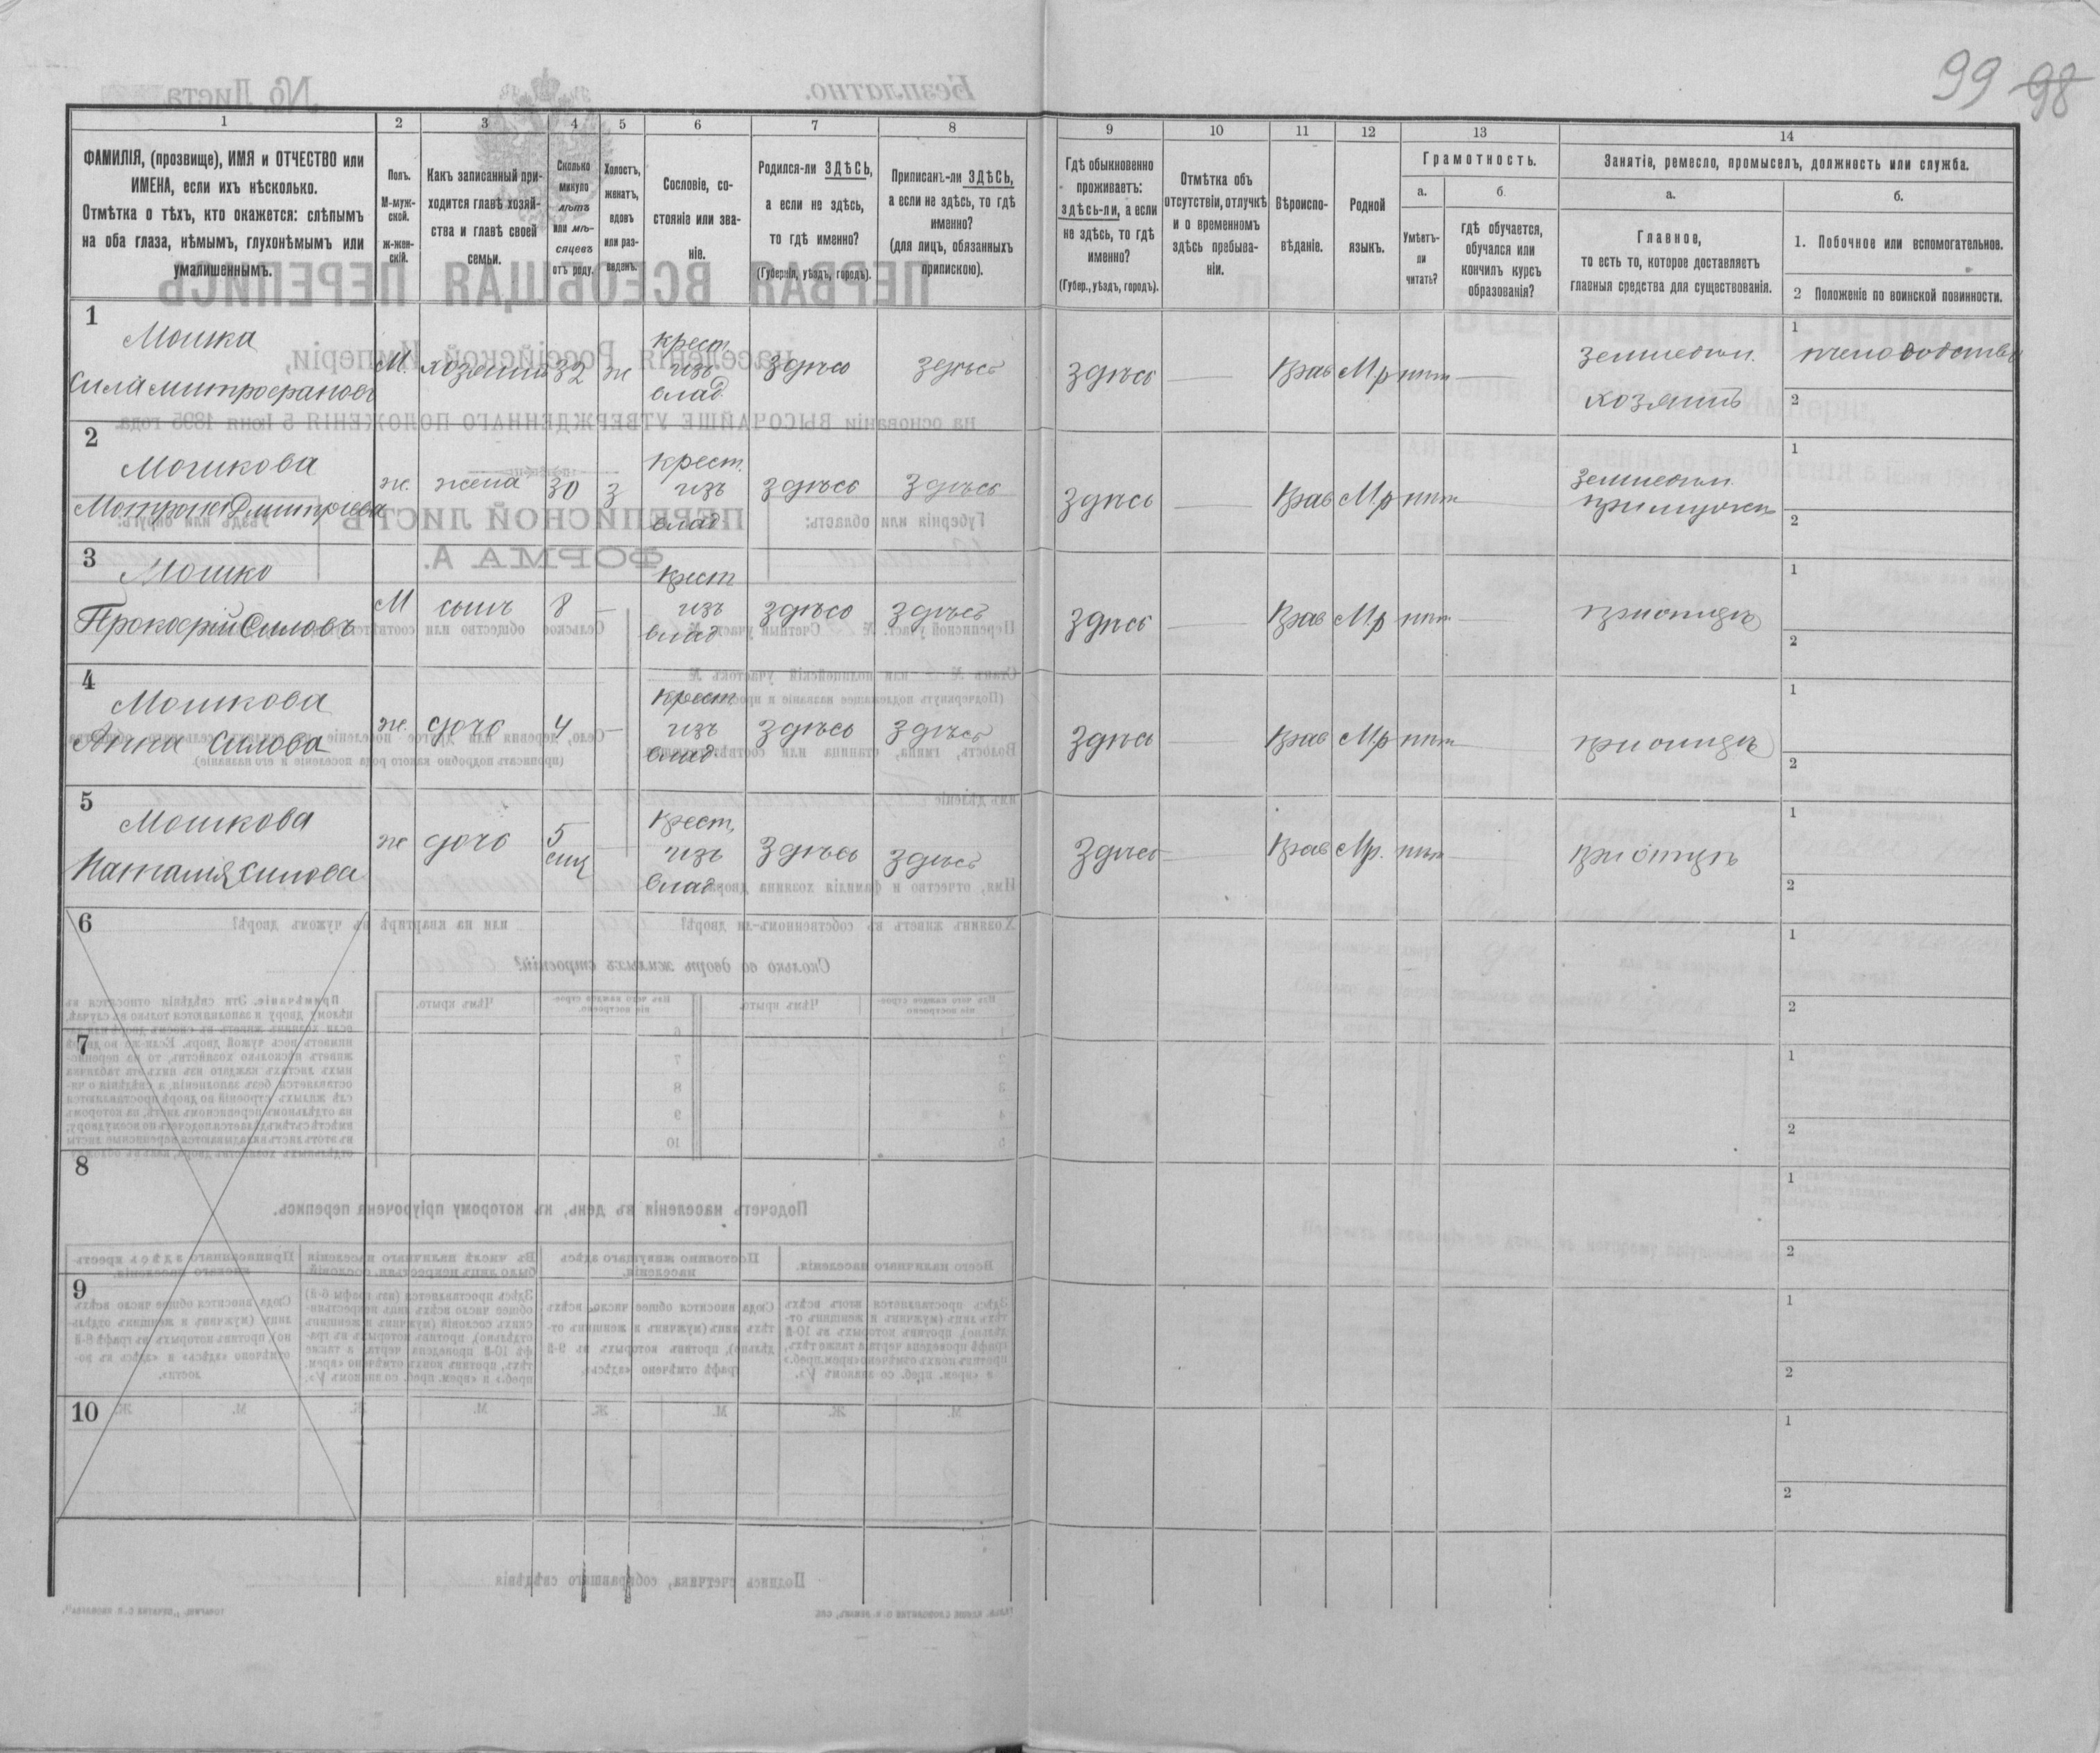 99 98
1 2 3 4 5 6 7 8 9 10 11 12 13 14
ФАМИЛІЯ, (прозвище), ИМЯ и ОТЧЕСТВО или
ИМЕНА, если ихъ нѣсколько.
Отмѣтка о тѣхъ, кто окажется: слѣпымъ
на оба глаза, нѣмымъ, глухонѣмымъ или
умалишеннымъ.
Полъ.
М-муж-
ской.
ж-жен-
скій.
Какъ записанный при-
ходится главѣ хозяй-
ства и главѣ своей
семьи.
Сколько
минуло
лѣтъ
или мѣ-
сяцевъ
отъ роду.
Холостъ,
женатъ,
вдовъ
или раз-
веденъ.
Сословіе, со-
стояніе или зва-
ніе.
Родился-ли ЗДѢСЬ,
а если не здѣсь,
то гдѣ именно?
(Губернія, уѣздъ, городъ).
Приписанъ-ли ЗДѢСЬ,
а если не здѣсь, то гдѣ
именно?
(для лицъ, обязанныхъ
припискою).
Гдѣ обыкновенно
проживаетъ:
здѣсь-ли, а если
не здѣсь, то гдѣ
именно?
(Губер., уѣздъ, городъ).
Отмѣтка объ
отсутствіи, отлучкѣ
и о временномъ
здѣсь пребыва-
ніи.
Вѣроиспо-
вѣданіе.
Родной
языкъ.
Грамотность.
а. б.
Умѣетъ-
ли
читать?
гдѣ обучается,
обучался или
кончилъ курсъ
образованія?
Занятіе, ремесло, промыселъ, должность или служба.
а. б.
Главное,
то есть то, которое доставляетъ
главныя средства для существованія.
1. Побочное или вспомогательное.
2 Положеніе по воинской повинности.
1
Мошка
Сила Митрофановъ
М. хозяинъ 32 ж
крест.
изъ
влад
здѣсь здѣсь здѣсь — Прав М.р нѣт —
земледѣл.
хозяинъ
1 пчеловодство
2
2
Мошкова
Матрона Дмитріева
ж. жена 30 з
крест.
изъ
влад.
здѣсь здѣсь здѣсь — Прав М.р нѣт —
земледѣл.
1
2
3
Мошко
Прокофій Силовъ
М сынъ 8 —
крест
изъ
влад
здѣсь здѣсь здѣсь — Прав М.р нѣт —
при отцѣ
1
2
4
Мошкова
Анна Силова
ж. дочь 4 —
крест
изъ
влад.
здѣсь здѣсь здѣсь — Прав М.р нѣт —
при отцѣ
1
2
5
Мошкова
Наталія Силова
ж дочь 5 —
крест,
изъ
влад.
здѣсь здѣсь здѣсь — Прав М.р. нѣт —
при отцѣ
1
2
6
1
2
7
1
2
8
1
2
9
1
2
10
1
2